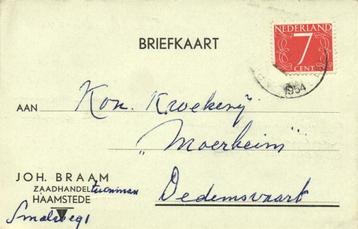 BRIEFKAART
NEDERLAND
7
CENT
1954
AAN Kon. Kwekerij
"Moerheim"
Dedemsvaart
JOH. BRAAM
ZAADHANDEL tuinman
HAAMSTEDE
Smalweg 1